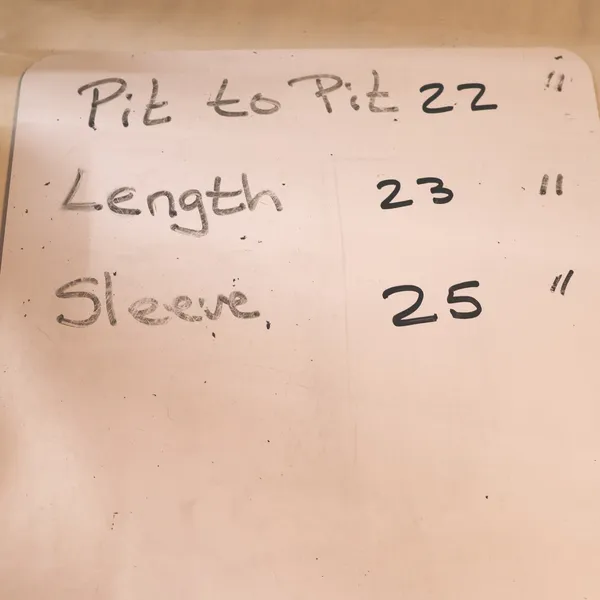 Pit to Pit 22 "
Length 23 "
Sleeve 25 "